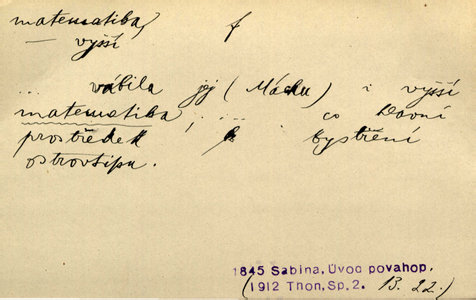 matematika, f
— vyšší
... vábila jej (Máchu) i vyšší
matematika, ... co hlavní
prostředek k bystření
ostrovtipu.
1845 Sabina, Úvod povahop.
(1912 Thon, Sp. 2. B. 22.)